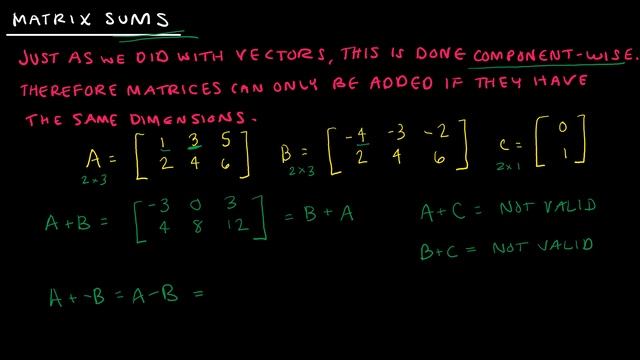 MATRIX SUMS
JUST AS WE DID WITH VECTORS, THIS IS DONE COMPONENT-WISE.
THEREFORE MATRICES CAN ONLY BE ADDED IF THEY HAVE
THE SAME DIMENSIONS.
A = [ 1 3 5 B = [ -4 -3 -2 C = [ 0
2×3 2 4 6 ] 2×3 2 4 6 ] 2×1 1 ]
A+B = [ -3 0 3 = B + A A+C = NOT VALID
4 8 12 ]
B+C = NOT VALID
A + -B = A - B =